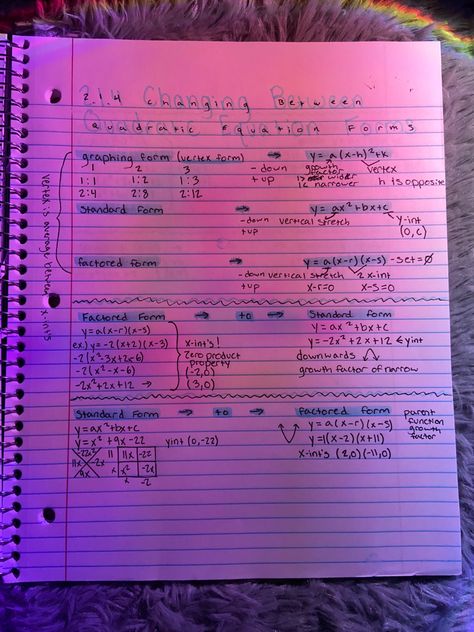 2.1.4 Changing Between
Quadratic Equation Forms
graphing form (vertex form) → y = a(x-h)²+k
1 2 3 - down growth factor vertex
1:1 1:2 1:3 + up 1> wider h is opposite
2:4 2:8 2:12 1< narrower
vertex is average between x-ints
Standard form → y = ax²+bx+c
- down vertical stretch y-int
+ up (0,c)
factored form → y = a(x-r)(x-s) - set = 0
- down vertical stretch 2 x-int
+ up x-r=0 x-s=0
Factored form → to → Standard form
y = a(x-r)(x-s) x-int's! y = ax²+bx+c
ex.) y = -2(x+2)(x-3) Zero product property y = -2x²+2x+12 ← yint
-2(x²-3x+2x-6) (-2,0) downwards
-2(x²-x-6) (3,0) growth factor of narrow
-2x²+2x+12 →
Standard form → to → factored form parent function growth factor
y = ax²+bx+c y = a(x-r)(x-s)
y = x²+9x-22 yint (0,-22) y = 1(x-2)(x+11)
-22x² 11 11x -22 x-int's (2,0)(-11,0)
11x -2x x x² -2x
9x x -2